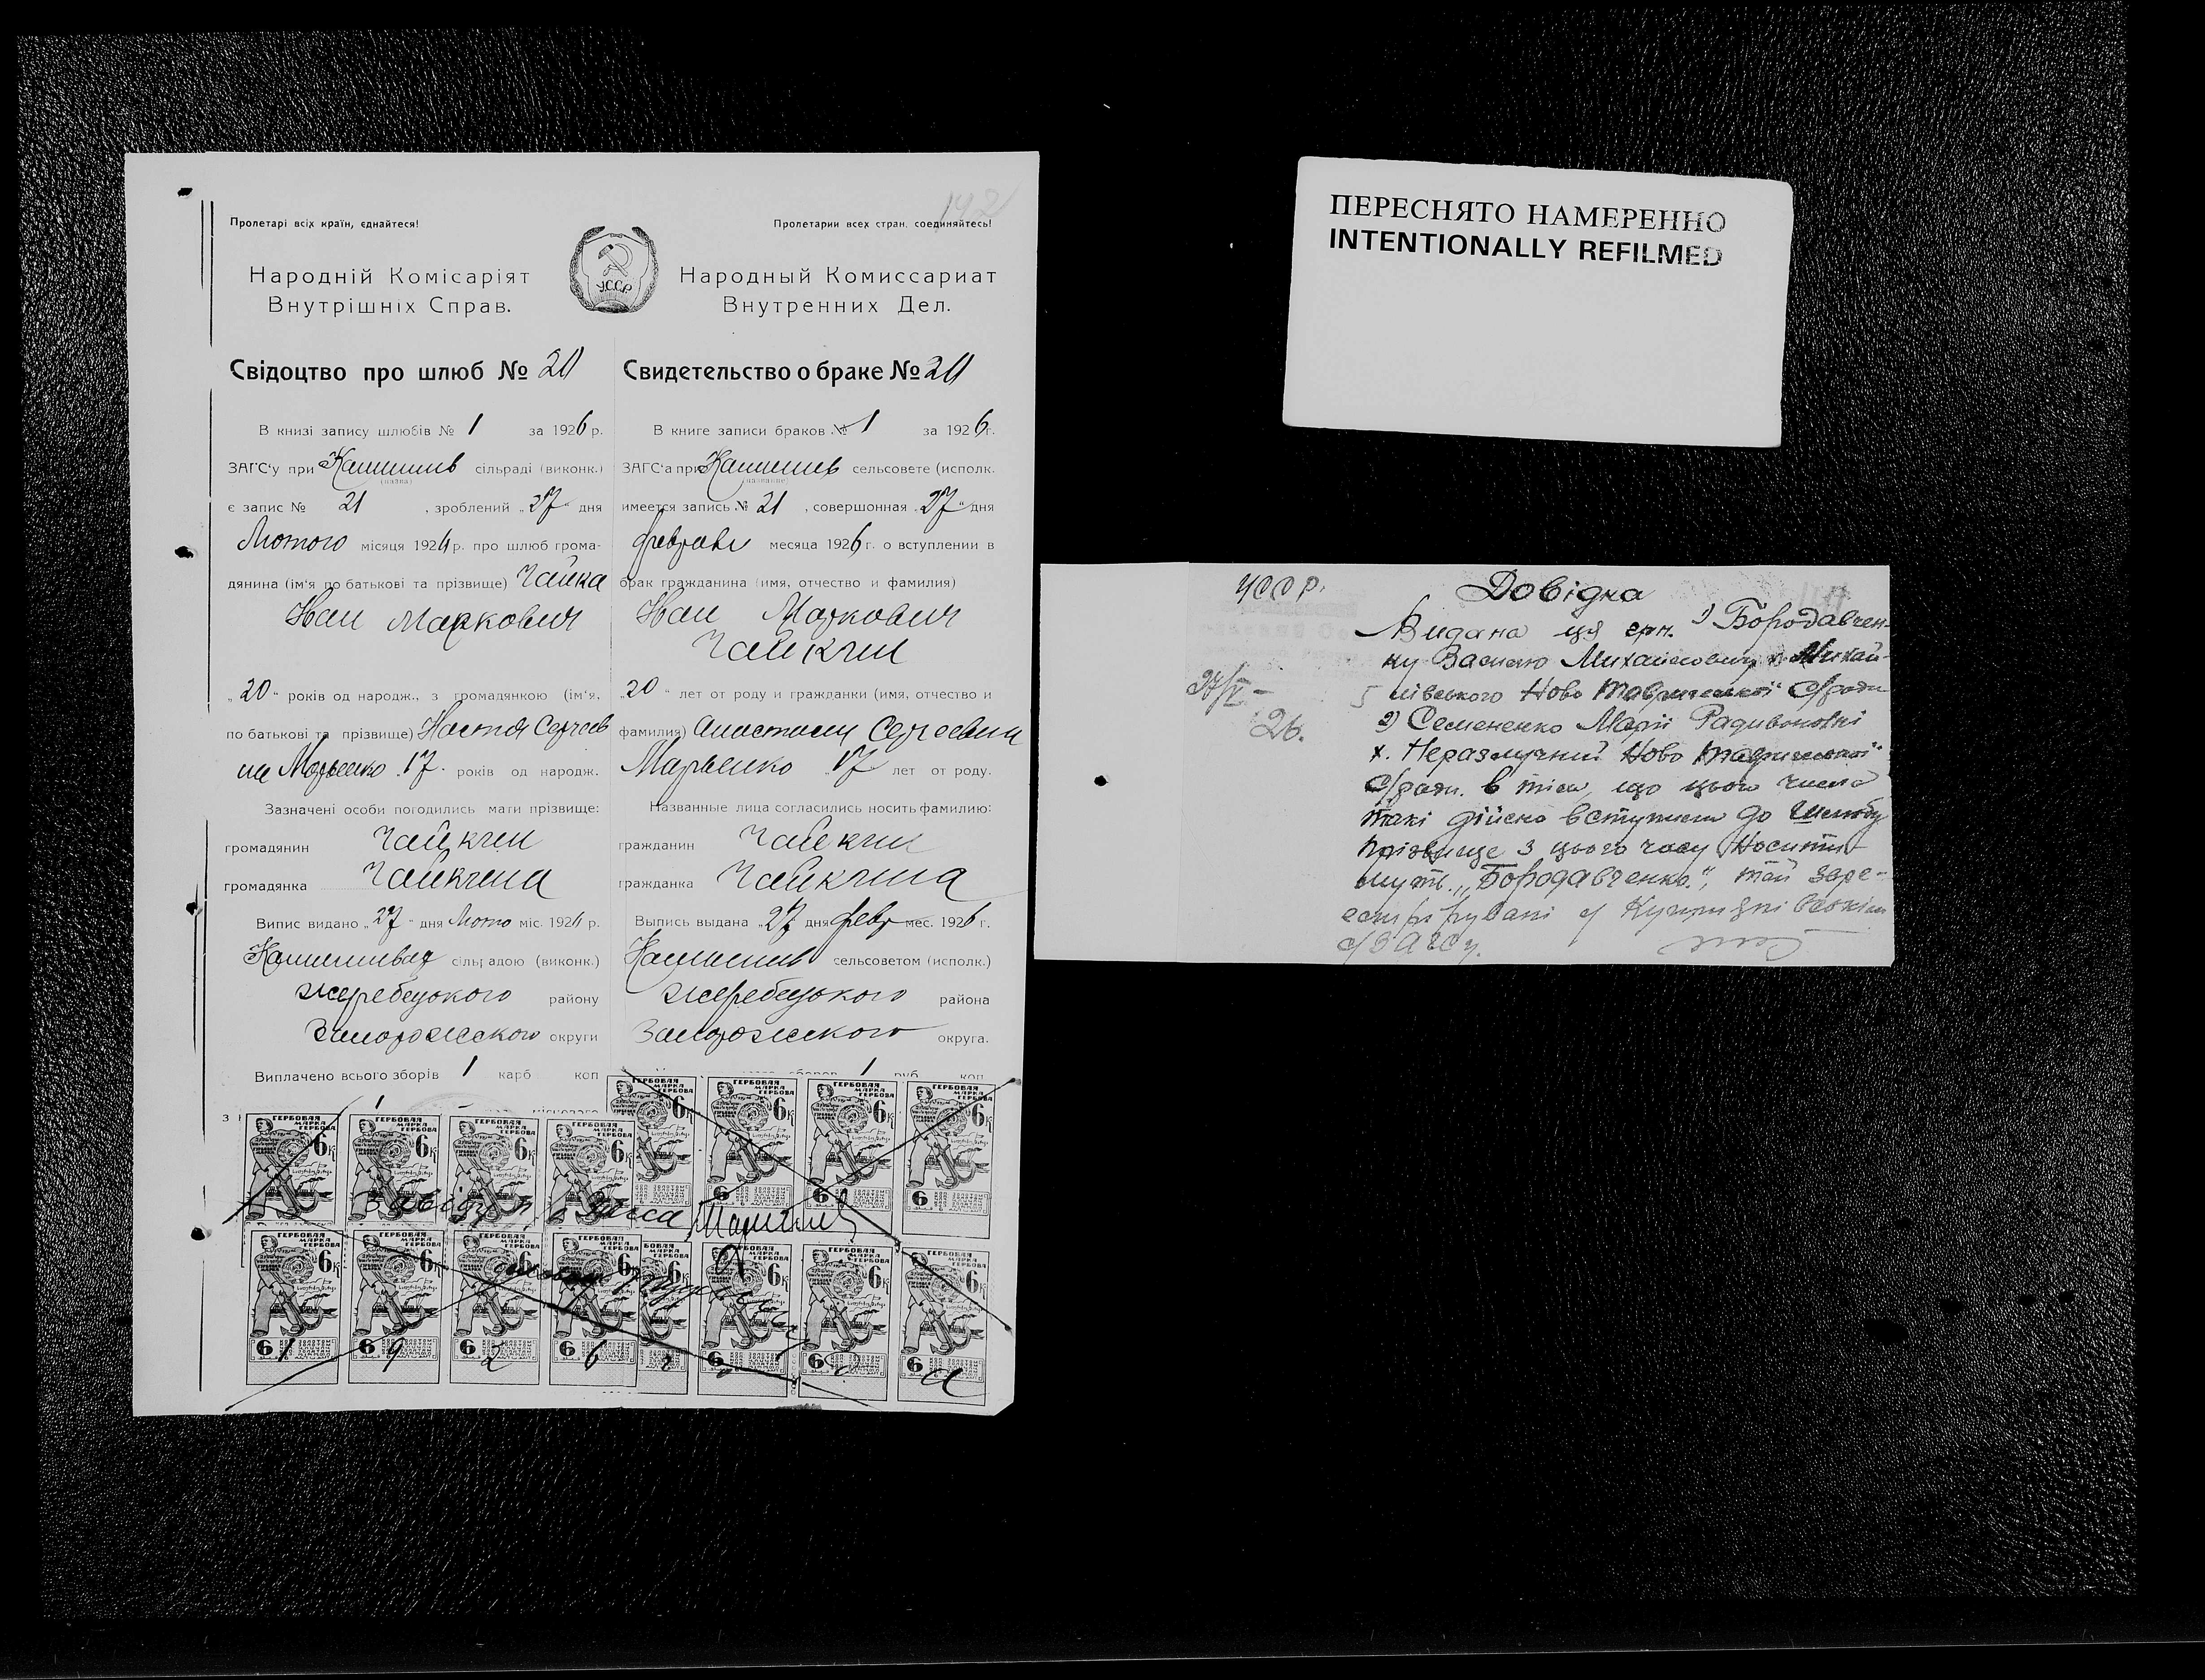 142
Пролетарі всіх країн, єднайтеся!
Народній Комісаріят
Внутрішніх Справ.
УССР
Пролетарии всех стран, соединяйтесь!
Народный Комиссариат
Внутренних Дел.
Свідоцтво про шлюб № 20
В книзі запису шлюбів № 1 за 1926 р.
ЗАГС'у при сільраді (виконк.)
(назва)
є запис № 21, зроблений „27" дня
Лютого місяця 1926 р. про шлюб грома-
дянина (ім'я по батькові та прізвище) Чайка
Иван Маркович
„20" років од народж., з громадянкою (ім'я,
по батькові та прізвище) Настя Сергеев
на Марченко 17 років од народж.
Зазначені особи погодились мати прізвище:
громадянин Чайкин
громадянка Чайкина
Випис видано „27" дня Люто міс. 1926 р.
сільрадою (виконк.)
Жеребецького району
Запорожского округи
Виплачено всього зборів 1 карб коп
Свидетельство о браке № 20
В книге записи браков № 1 за 1926 г.
ЗАГС'а при сельсовете (исполк.
(название)
имеется запись № 21, совершонная „27" дня
февраля месяца 1926 г. о вступлении в
брак гражданина (имя, отчество и фамилия)
Иван Маркович
Чайкин
„20" лет от роду и гражданки (имя, отчество и
фамилия) Анастасия Сергеевна
Марченко „17 лет от роду.
Названные лица согласились носить фамилию:
гражданин Чайкин
гражданка Чайкина
Выпись выдана „27 дня февр мес. 1926 г.
сельсоветом (исполк.)
Жеребецького района
Запорожского округа.
1 руб. коп.
ГЕРБОВАЯ МАРКА ГЕРБОВА 6к
1 9 2 6
ПЕРЕСНЯТО НАМЕРЕННО
INTENTIONALLY REFILMED
УССР.
27/V-
26.
Довідка
Видана ця грн. 1) Бородавчен-
ку Василю Михайловичу х. Михай-
лівського Ново Таврической С/ради
2) Семененко Марії Радивоновні
х. Неразлучний Ново Таврической
С/ради. в тім, що цього числа
такі дійсно вступили до Шлюбу
прізвище з цього часу Носити
муть „Бородавченко", той заре-
гистріровані у
с/ЗАГСу.